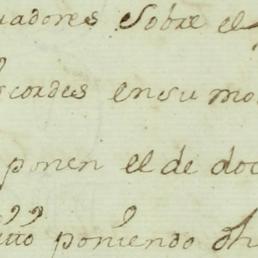 uadores Sobre el
cordes ensu mo
ponen el de do
tto poniendo